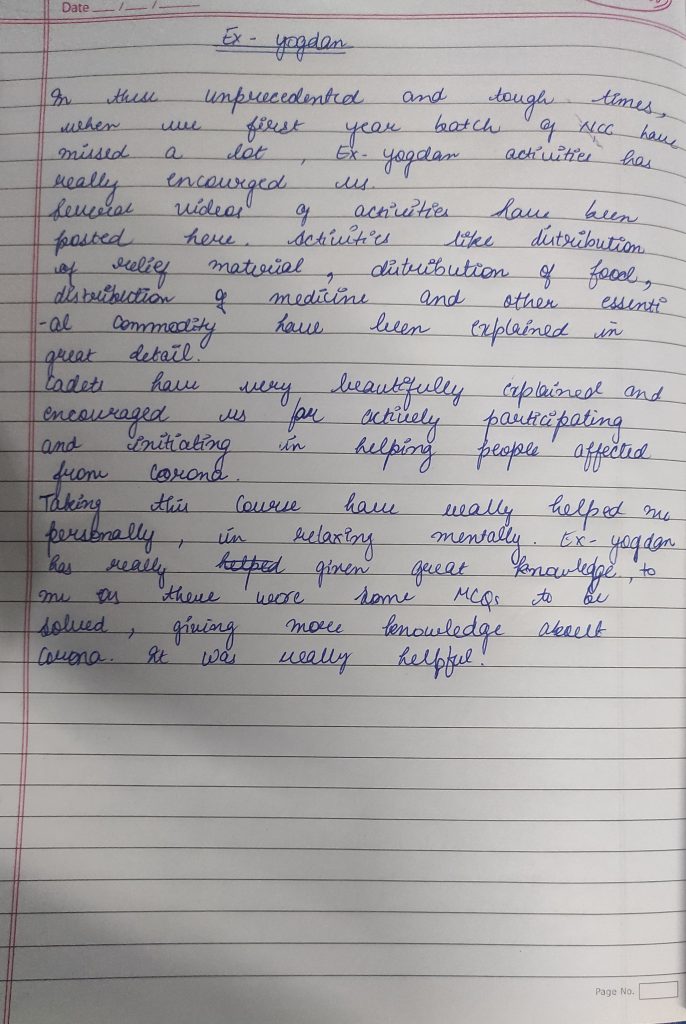 Date __/__/____
Ex - yogdan
In these unprecedented and tough times,
when we first year batch of NCC have
missed a lot, Ex-yogdan activities has
really encourged us.
Several videos of activities have been
posted here. Activities like distribution
of relief material, distribution of food,
distribution of medicine and other essenti
-al commodity have been explained in
great detail.
Cadets have very beautifully explained and
encouraged us for actively participating
and initiating in helping people affected
from corona.
Taking this course have really helped me
personally, in relaxing mentally. Ex-yogdan
has really helped given great knowledge, to
me as there were some MCQs to be
solved, giving more knowledge about
Corona. It was really helpful.
Page No.